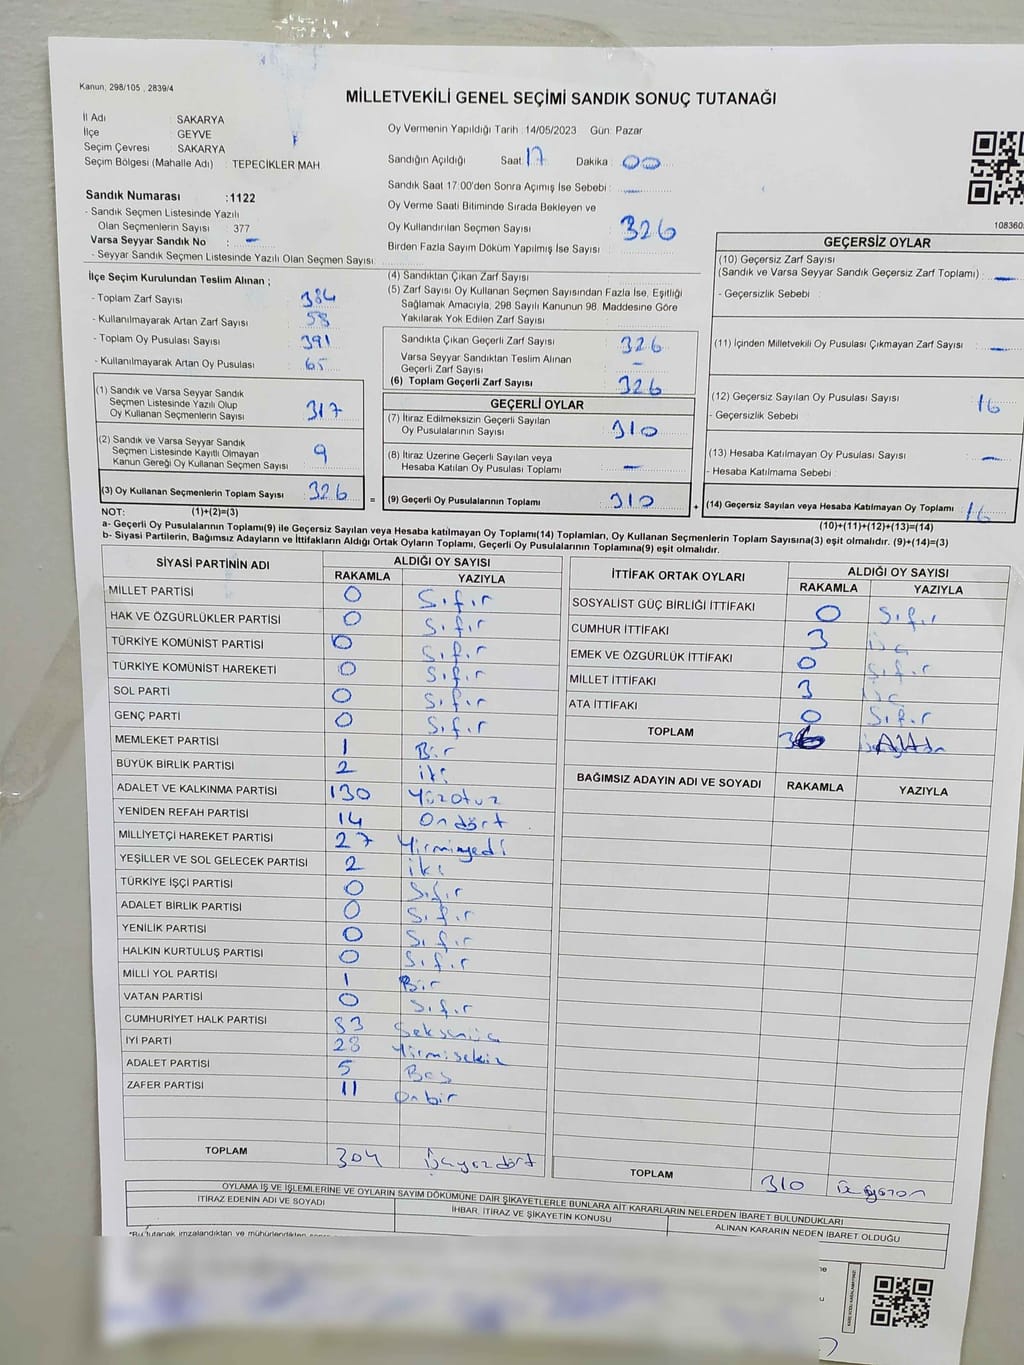 Kanun, 298/105 , 2839/4
MİLLETVEKİLİ GENEL SEÇİMİ SANDIK SONUÇ TUTANAĞI
İl Adı : SAKARYA
İlçe : GEYVE
Seçim Çevresi : SAKARYA
Seçim Bölgesi (Mahalle Adı) : TEPECİKLER MAH
Sandık Numarası :1122
- Sandık Seçmen Listesinde Yazılı
Olan Seçmenlerin Sayısı : 377
Varsa Seyyar Sandık No : -
- Seyyar Sandık Seçmen Listesinde Yazılı Olan Seçmen Sayısı:
Oy Vermenin Yapıldığı Tarih :14/05/2023 Gün: Pazar
Sandığın Açıldığı Saat 17 Dakika : 00
Sandık Saat 17:00'den Sonra Açımış İse Sebebi : -
Oy Verme Saati Bitiminde Sırada Bekleyen ve
Oy Kullandırılan Seçmen Sayısı : 326
Birden Fazla Sayım Döküm Yapılmış İse Sayısı :
108360
İlçe Seçim Kurulundan Teslim Alınan ;
- Toplam Zarf Sayısı : 384
- Kullanılmayarak Artan Zarf Sayısı : 58
- Toplam Oy Pusulası Sayısı : 391
- Kullanılmayarak Artan Oy Pusulası : 65
(1) Sandık ve Varsa Seyyar Sandık
Seçmen Listesinde Yazılı Olup
Oy Kullanan Seçmenlerin Sayısı : 317
(2) Sandık ve Varsa Seyyar Sandık
Seçmen Listesinde Kayıtlı Olmayan
Kanun Gereği Oy Kullanan Seçmen Sayısı : 9
(3) Oy Kullanan Seçmenlerin Toplam Sayısı : 326 =
(4) Sandıktan Çıkan Zarf Sayısı :
(5) Zarf Sayısı Oy Kullanan Seçmen Sayısından Fazla İse, Eşitliği
Sağlamak Amacıyla, 298 Sayılı Kanunun 98. Maddesine Göre
Yakılarak Yok Edilen Zarf Sayısı :
Sandıkta Çıkan Geçerli Zarf Sayısı : 326
Varsa Seyyar Sandıktan Teslim Alınan
Geçerli Zarf Sayısı : -
(6) Toplam Geçerli Zarf Sayısı : 326
GEÇERLİ OYLAR
(7) İtiraz Edilmeksizin Geçerli Sayılan
Oy Pusulalarının Sayısı : 310
(8) İtiraz Üzerine Geçerli Sayılan veya
Hesaba Katılan Oy Pusulası Toplamı : -
(9) Geçerli Oy Pusulalarının Toplamı : 310 +
GEÇERSİZ OYLAR
(10) Geçersiz Zarf Sayısı
(Sandık ve Varsa Seyyar Sandık Geçersiz Zarf Toplamı) : -
- Geçersizlik Sebebi :
(11) İçinden Milletvekili Oy Pusulası Çıkmayan Zarf Sayısı : -
(12) Geçersiz Sayılan Oy Pusulası Sayısı : 16
- Geçersizlik Sebebi :
(13) Hesaba Katılmayan Oy Pusulası Sayısı : -
- Hesaba Katılmama Sebebi :
(14) Geçersiz Sayılan veya Hesaba Katılmayan Oy Toplamı : 16
NOT: (1)+(2)=(3)
(10)+(11)+(12)+(13)=(14)
a- Geçerli Oy Pusulalarının Toplamı(9) ile Geçersiz Sayılan veya Hesaba katılmayan Oy Toplamı(14) Toplamları, Oy Kullanan Seçmenlerin Toplam Sayısına(3) eşit olmalıdır. (9)+(14)=(3)
b- Siyasi Partilerin, Bağımsız Adayların ve İttifakların Aldığı Ortak Oyların Toplamı, Geçerli Oy Pusulalarının Toplamına(9) eşit olmalıdır.
SİYASİ PARTİNİN ADI ALDIĞI OY SAYISI
RAKAMLA YAZIYLA
MİLLET PARTİSİ 0 Sıfır
HAK VE ÖZGÜRLÜKLER PARTİSİ 0 Sıfır
TÜRKİYE KOMÜNİST PARTİSİ 0 Sıfır
TÜRKİYE KOMÜNİST HAREKETİ 0 Sıfır
SOL PARTİ 0 Sıfır
GENÇ PARTİ 0 Sıfır
MEMLEKET PARTİSİ 1 Bir
BÜYÜK BİRLİK PARTİSİ 2 iki
ADALET VE KALKINMA PARTİSİ 130 Yüzotuz
YENİDEN REFAH PARTİSİ 14 Ondört
MİLLİYETÇİ HAREKET PARTİSİ 27 Yirmiyedi
YEŞİLLER VE SOL GELECEK PARTİSİ 2 iki
TÜRKİYE İŞÇİ PARTİSİ 0 Sıfır
ADALET BİRLİK PARTİSİ 0 Sıfır
YENİLİK PARTİSİ 0 Sıfır
HALKIN KURTULUŞ PARTİSİ 0 Sıfır
MİLLİ YOL PARTİSİ 1 Bir
VATAN PARTİSİ 0 Sıfır
CUMHURİYET HALK PARTİSİ 83 Seksenüç
İYİ PARTİ 28 Yirmisekiz
ADALET PARTİSİ 5 Beş
ZAFER PARTİSİ 11 Onbir
TOPLAM 304 Üçyüzdört
İTTİFAK ORTAK OYLARI ALDIĞI OY SAYISI
RAKAMLA YAZIYLA
SOSYALİST GÜÇ BİRLİĞİ İTTİFAKI 0 Sıfır
CUMHUR İTTİFAKI 3 üç
EMEK VE ÖZGÜRLÜK İTTİFAKI 0 Sıfır
MİLLET İTTİFAKI 3 üç
ATA İTTİFAKI 0 Sıfır
TOPLAM
BAĞIMSIZ ADAYIN ADI VE SOYADI RAKAMLA YAZIYLA
TOPLAM 310 üçyüzon
OYLAMA İŞ VE İŞLEMLERİNE VE OYLARIN SAYIM DÖKÜMÜNE DAİR ŞİKAYETLERLE BUNLARA AİT KARARLARIN NELERDEN İBARET BULUNDUKLARI
İTİRAZ EDENİN ADI VE SOYADI İHBAR, İTİRAZ VE ŞİKAYETİN KONUSU ALINAN KARARIN NEDEN İBARET OLDUĞU
*Bu tutanak imzalandıktan ve mühürlendikten sonra